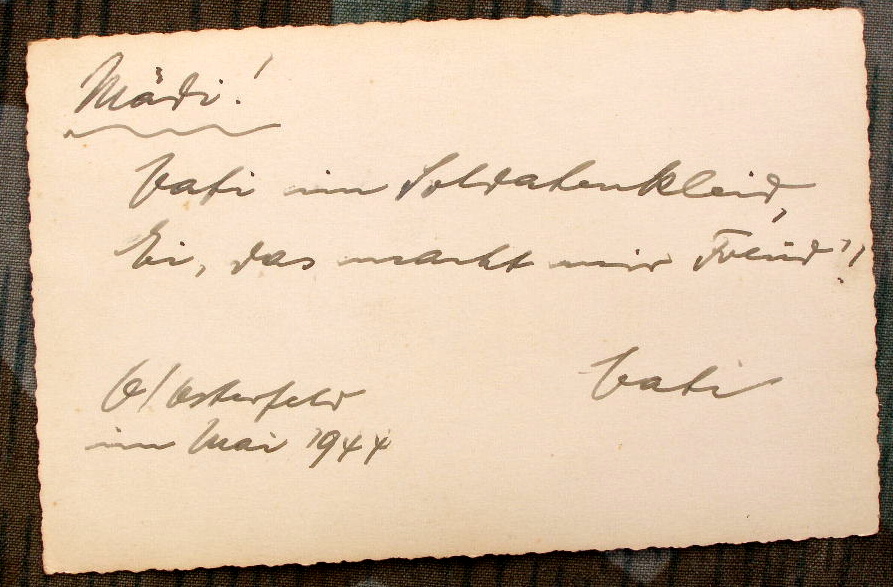 Mädi!
Vati im Soldatenkleid,
Ei, das macht mir Freud"!
O/Osterfeld
im Mai 1944
Vati